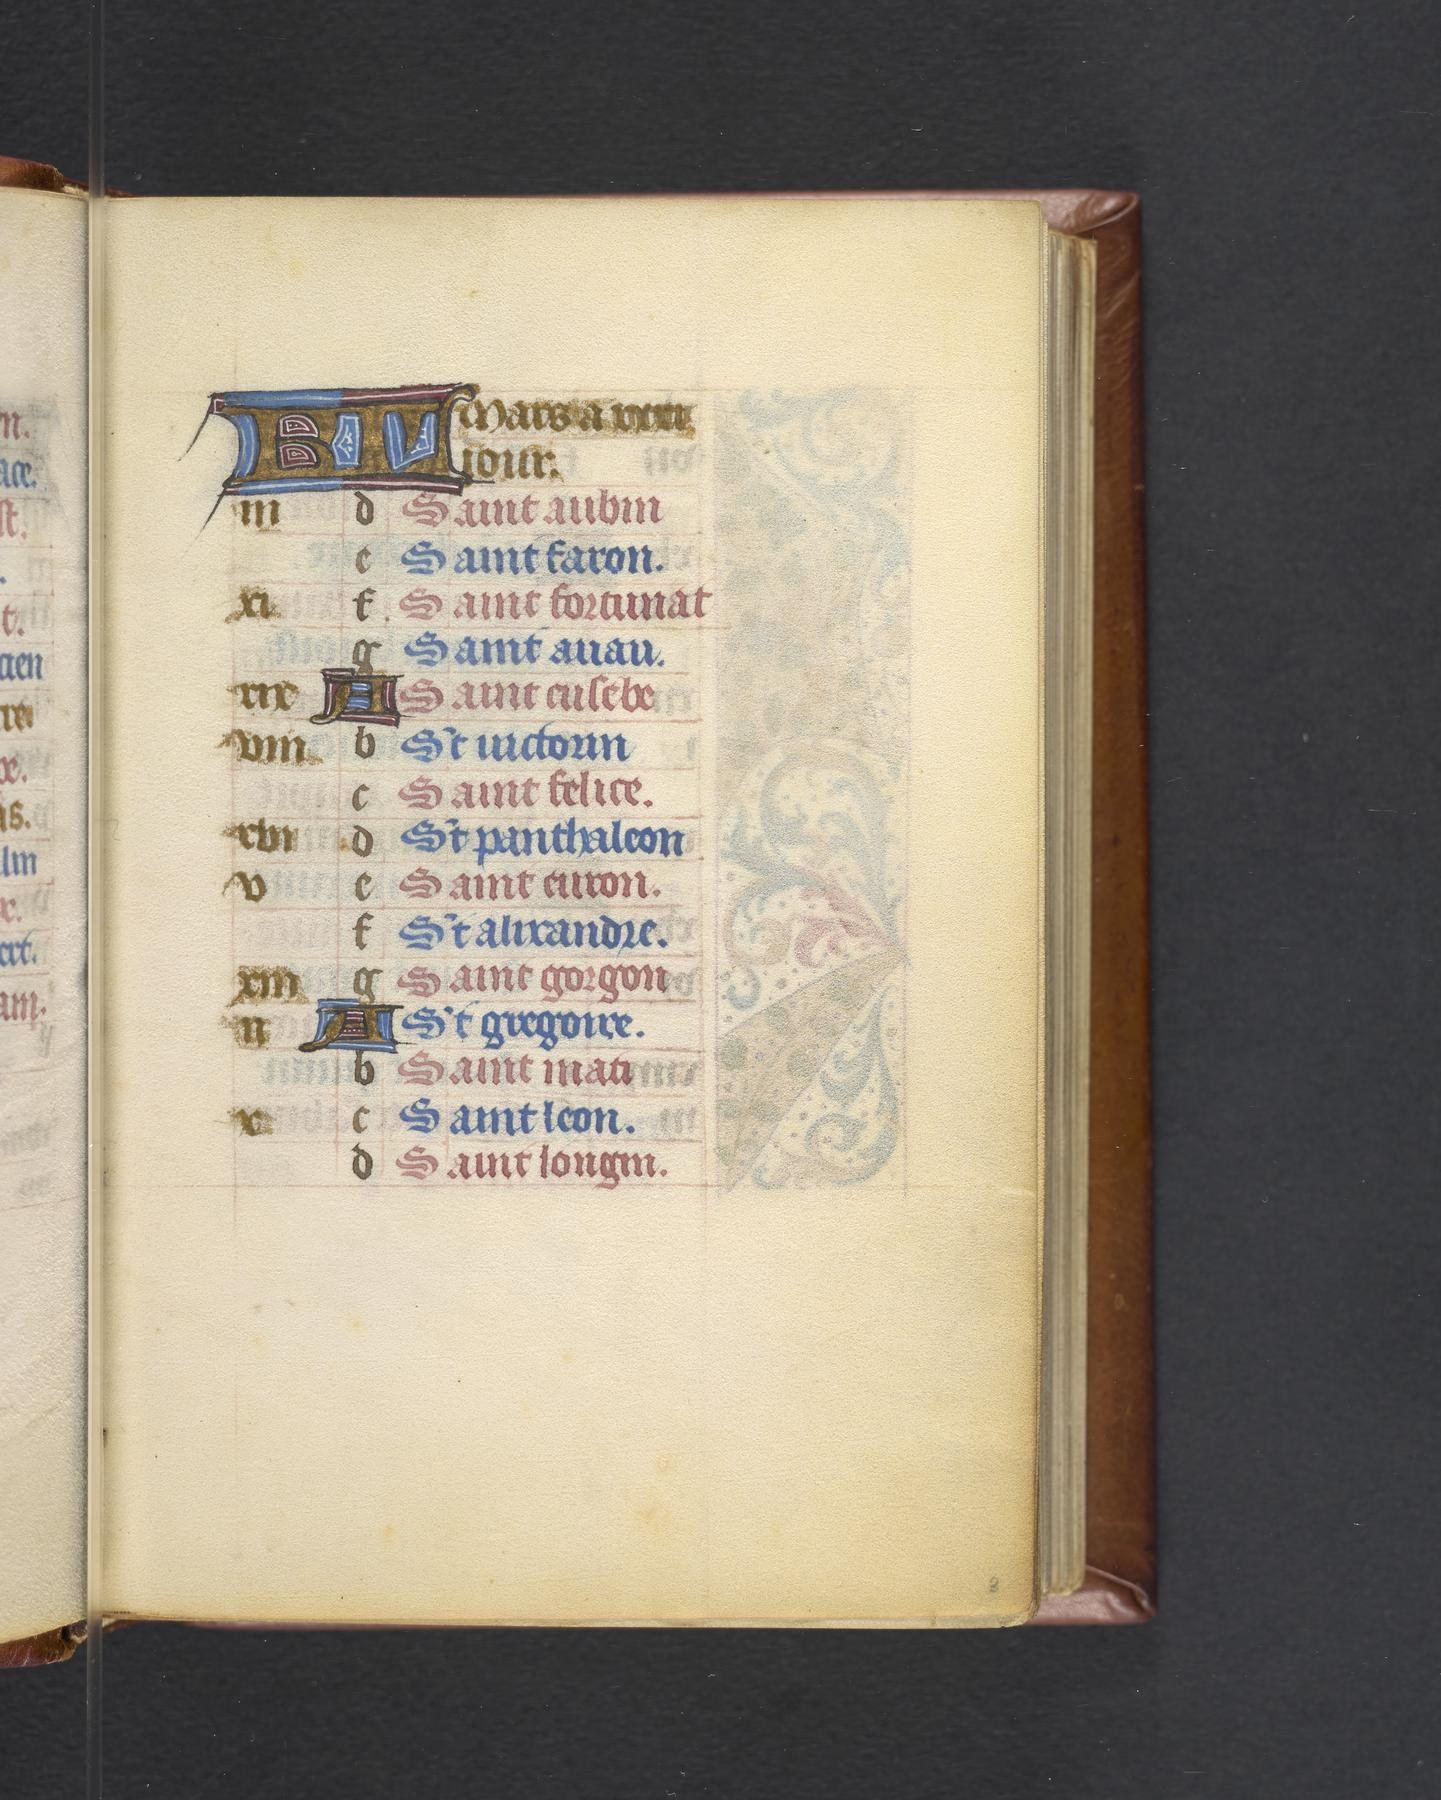 KL Mars a xxxi
jour.
iii d Saint aubin
e Saint faron.
xi f. Saint fortunat
g Saint auau.
xix A Saint eusebe
viii b St uictorin
c Saint felice.
xvi d St panthaleon
v e Saint euron.
f St alixandre.
xiii g Saint gorgon
ii A St gregoire.
b Saint mati
x c Saint leon.
d Saint longin.